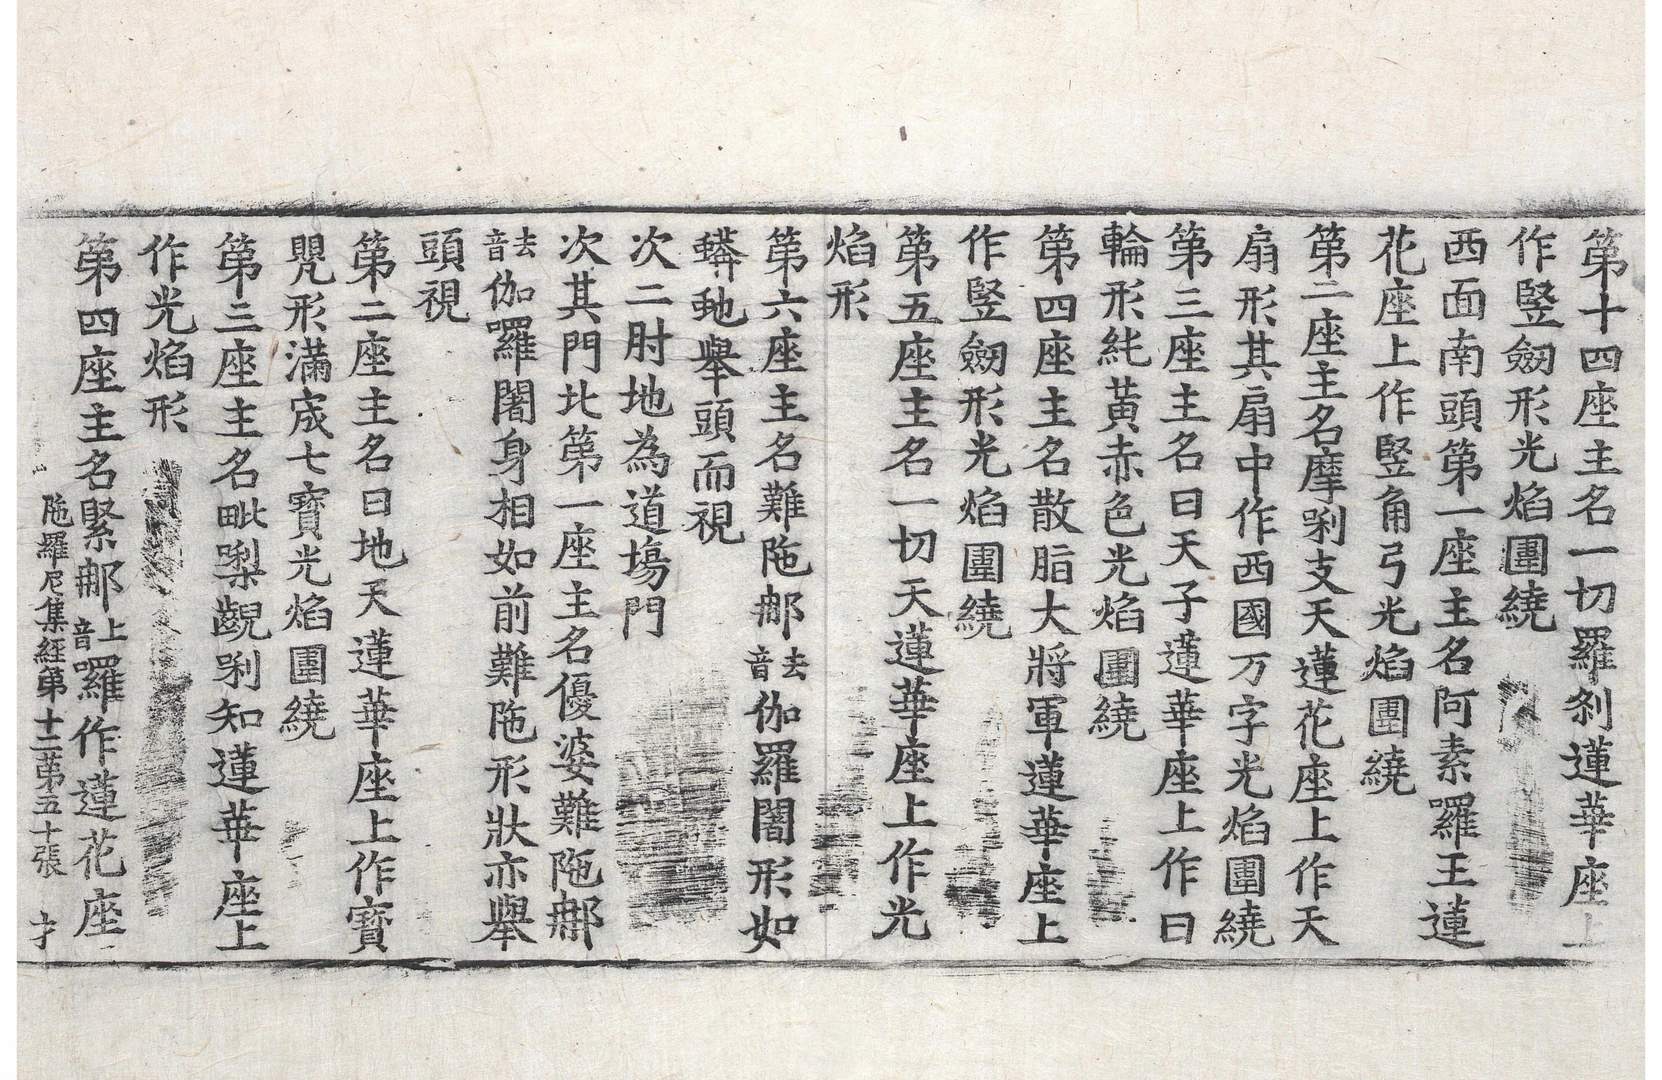 第十四座主名一切羅刹蓮華座上
作竪劒形光焰團繞
西面南頭第一座主名阿素羅王蓮
花座上作竪角弓光焰團繞
第二座主名摩唎支天蓮花座上作天
扇形其扇中作西國万字光焰團繞
第三座主名日天子蓮華座上作日
輪形純黃赤色光焰團繞
第四座主名散脂大將軍蓮華座上
作竪劒形光焰團繞
第五座主名一切天蓮華座上作光
焰形
第六座主名難陁郍去音伽羅闍形如
蟒虵舉頭而視
次二肘地為道場門
次其門北第一座主名優婆難陁郍
去音伽囉闍身相如前難陁形狀亦舉
頭視
第二座主名曰地天蓮華座上作寶
甖形滿宬七寶光焰團繞
第三座主名毗㗚齯唎知蓮華座上
作光焰形
第四座主名緊郍上音囉作蓮花座
陁羅尼集經第十二 第五十張 才